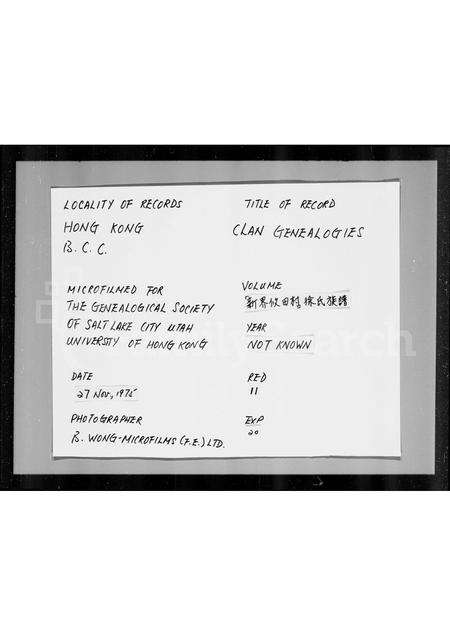 LOCALITY OF RECORDS
HONG KONG
B. C. C.
TITLE OF RECORD
CLAN GENEALOGIES
MICROFILMED FOR
THE GENEALOGICAL SOCIETY
OF SALT LAKE CITY UTAH
UNIVERSITY OF HONG KONG
VOLUME
新界 田村 氏族譜
YEAR
NOT KNOWN
DATE
27 NOV, 1975
RED
11
PHOTOGRAPHER
B. WONG-MICROFILMS (F.E.) LTD.
EXP
20
FamilySearch